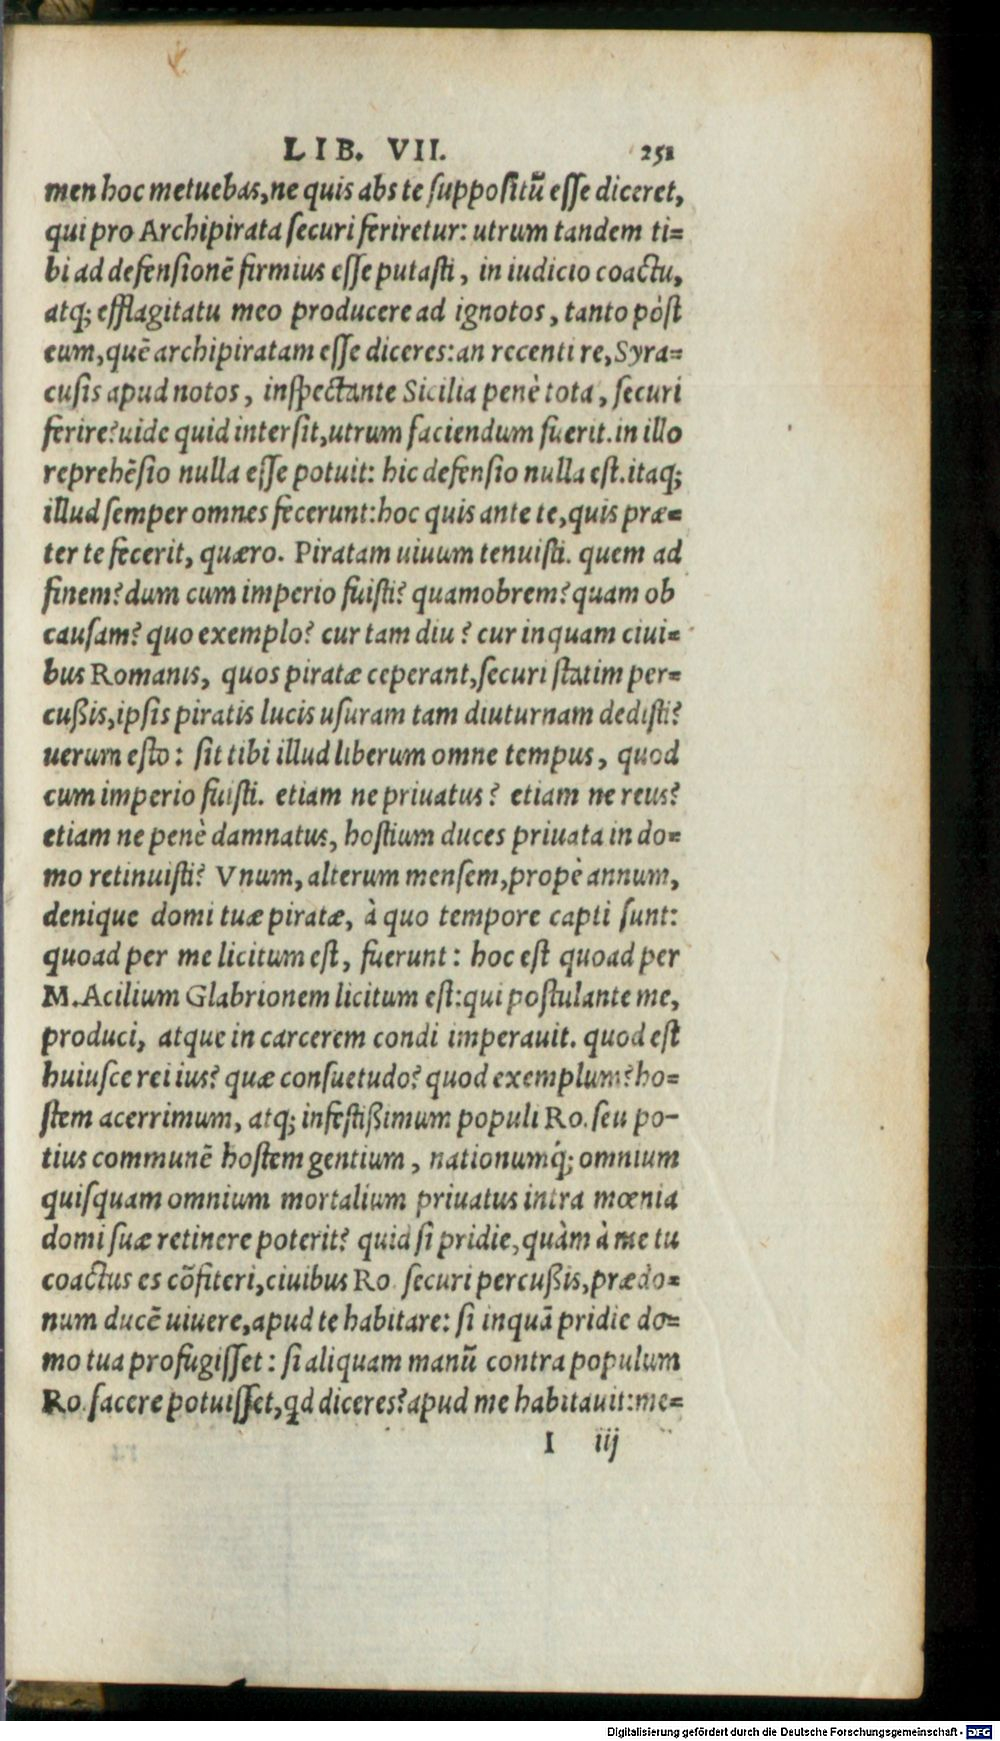 LIB. VII. 251
men hoc metuebas, ne quis abs te suppositũ esse diceret,
qui pro Archipirata securi feriretur: utrum tandem ti=
bi ad defensionẽ firmius esse putasti, in iudicio coactu,
atq; efflagitatu meo producere ad ignotos, tanto pòst
eum, quẽ archipiratam esse diceres: an recenti re, Syra=
cusis apud notos, inspectante Sicilia penè tota, securi
ferire? uide quid intersit, utrum faciendum fuerit. in illo
reprehẽsio nulla esse potuit: hic defensio nulla est. itaq;
illud semper omnes fecerunt: hoc quis ante te, quis præ=
ter te fecerit, quæro. Piratam uiuum tenuisti. quem ad
finem? dum cum imperio fuisti? quamobrem? quam ob
causam? quo exemplo? cur tam diu? cur inquam ciui=
bus Romanis, quos piratæ ceperant, securi statim per=
cußis, ipsis piratis lucis usuram tam diuturnam dedisti?
uerum esto: sit tibi illud liberum omne tempus, quod
cum imperio fuisti. etiam ne priuatus? etiam ne reus?
etiam ne penè damnatus, hostium duces priuata in do=
mo retinuisti? Vnum, alterum mensem, propè annum,
denique domi tuæ piratæ, à quo tempore capti sunt:
quoad per me licitum est, fuerunt: hoc est quoad per
M. Acilium Glabrionem licitum est: qui postulante me,
produci, atque in carcerem condi imperauit. quod est
huiusce rei ius? quæ consuetudo? quod exemplum? ho=
stem acerrimum, atq; infestißimum populi Ro. seu po-
tius communẽ hostem gentium, nationumq́; omnium
quisquam omnium mortalium priuatus intra mœnia
domi suæ retinere poterit? quid si pridie, quàm à me tu
coactus es cõfiteri, ciuibus Ro. securi percußis, prædo=
num ducẽ uiuere, apud te habitare: si inquã pridie do=
mo tua profugisset: si aliquam manũ contra populum
Ro. facere potuisset, qd diceres? apud me habitauit: me=
I iij
Digitalisierung gefördert durch die Deutsche Forschungsgemeinschaft - DFG